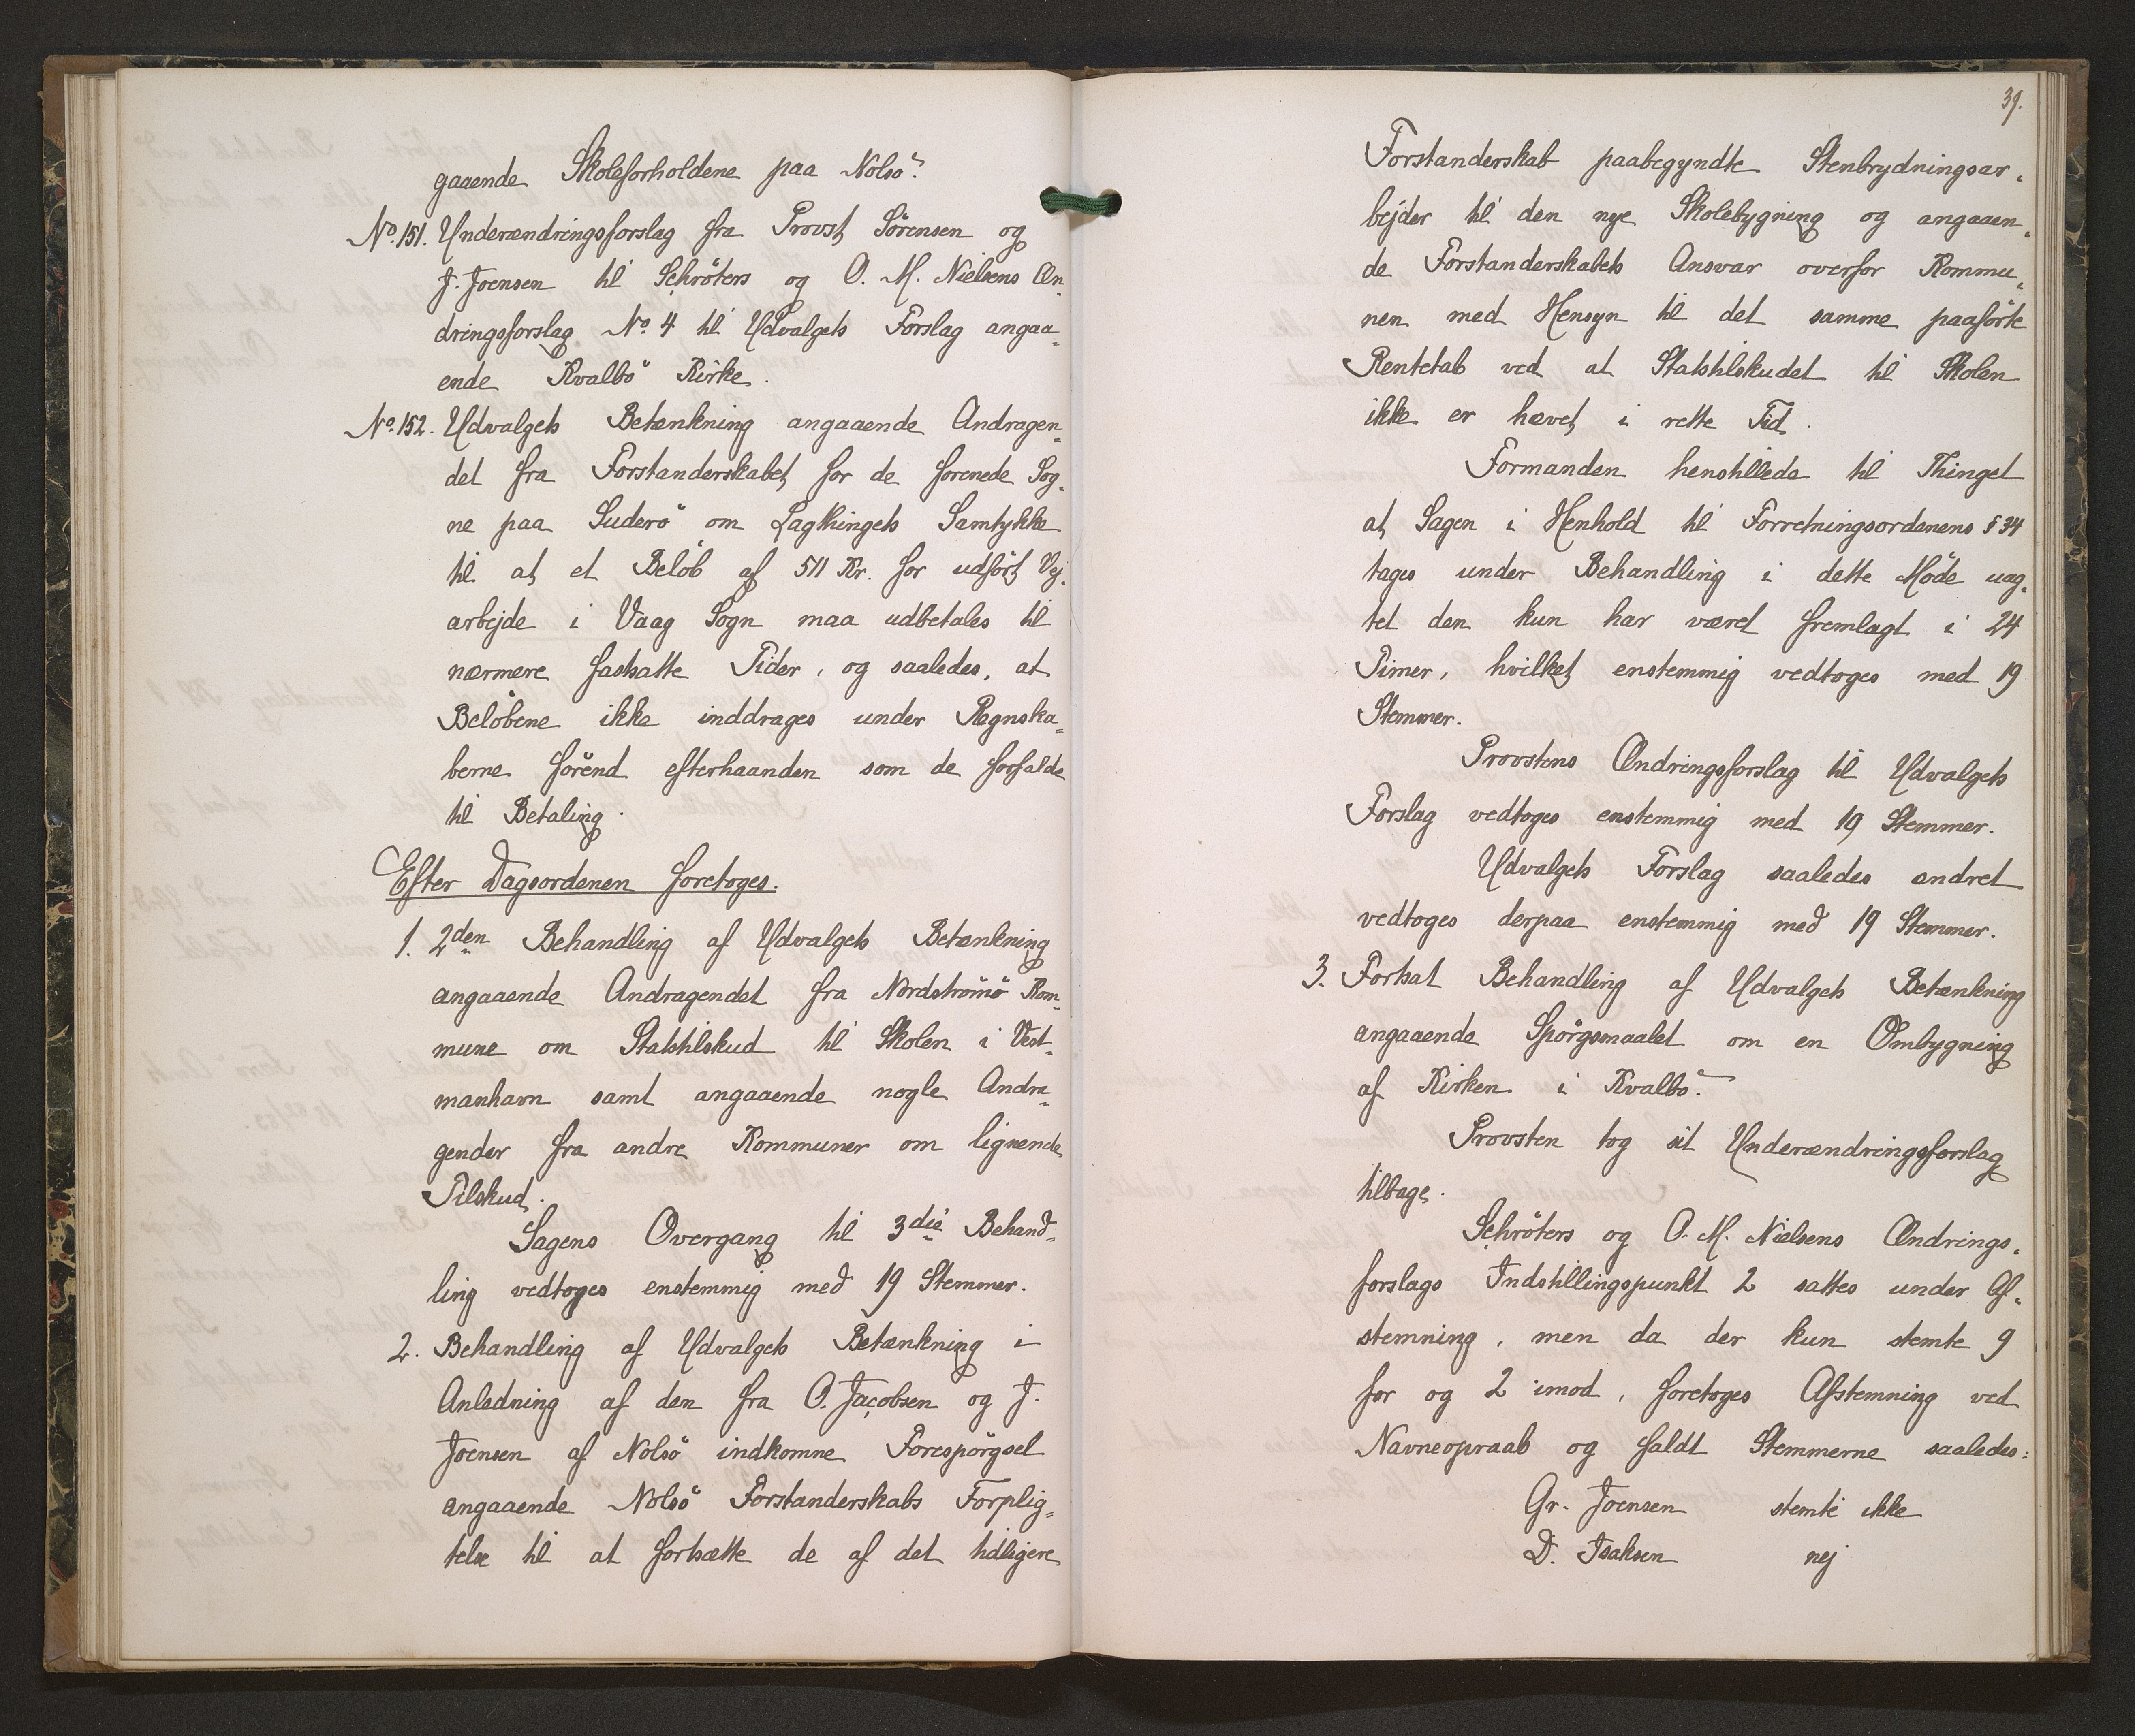 gaaende Skoleforholdene paa Nolsö.
No. 151. Underændringsforslag fra Provst Sörensen og
J. Joensen til Schröters og O. M. Nielsens Æn-
dringsforslag No. 4 til Udvalgets Forslag angaa-
ende Kvalbö Kirke.
No. 152. Udvalgets Betænkning angaaende Andragen-
det fra Forstanderskabet for de forenede Sog-
ne paa Suderö om Lagthingets Samtykke
til at et Belöb af 511 Kr. for udfört Vej-
arbejde i Vaag Sogn maa udbetales til
nærmere fastsatte Tider, og saaledes, at
Belöbene ikke inddrages under Regnska-
berne förend efterhaanden som de forfalde
til Betaling.
Efter Dagsordenen foretoges.
1. 2den Behandling af Udvalgets Betænkning
angaaende Andragendet fra Nordströmö Kom-
mune om Statstilskud til Skolen i Vest-
manhavn samt angaaende nogle Andra-
gender fra andre Kommuner om lignende
Tilskud.
Sagens Overgang til 3die Behand-
ling vedtoges enstemmig med 19 Stemmer.
2. Behandling af Udvalgets Betænkning i
Anledning af den fra O. Jacobsen og J.
Joensen af Nolsö indkomne Forespörgsel
angaaende Nolsö Forstanderskabs Forplig-
telse til at fortsætte de af det tidligere
39.
Forstanderskab paabegyndte Stenbrydningsar-
bejder til den nye Skolebygning og angaaen-
de Forstanderskabets Ansvar overfor Kommu-
nen med Hensyn til det samme paaförte
Rentetab ved at Statstilskudet til Skolen
ikke er hævet i rette Tid.
Formanden henstillede til Thinget
at Sagen i Henhold til Forretningsordenens § 34
tages under Behandling i dette Möde uag-
tet den kun har været fremlagt i 24
Timer, hvilket enstemmig vedtoges med 19
Stemmer.
Provstens Ændringsforslag til Udvalgets
Forslag vedtoges enstemmig med 19 Stemmer.
Udvalgets Forslag saaledes ændret
vedtoges derpaa enstemmig med 19 Stemmer.
3. Fortsat Behandling af Udvalgets Betænkning
angaaende Spörgsmaalet om en Ombygning
af Kirken i Kvalbö.
Provsten tog sit Underændringsforslag
tilbage.
Schröters og O. M. Nielsens Ændrings-
forslags Indstillingspunkt 2 sattes under Af-
stemning, men da der kun stemte 9
for og 2 imod, foretoges Afstemning ved
Navneopraab og faldt Stemmerne saaledes:
Gr. Joensen stemte ikke
D. Isaksen nej